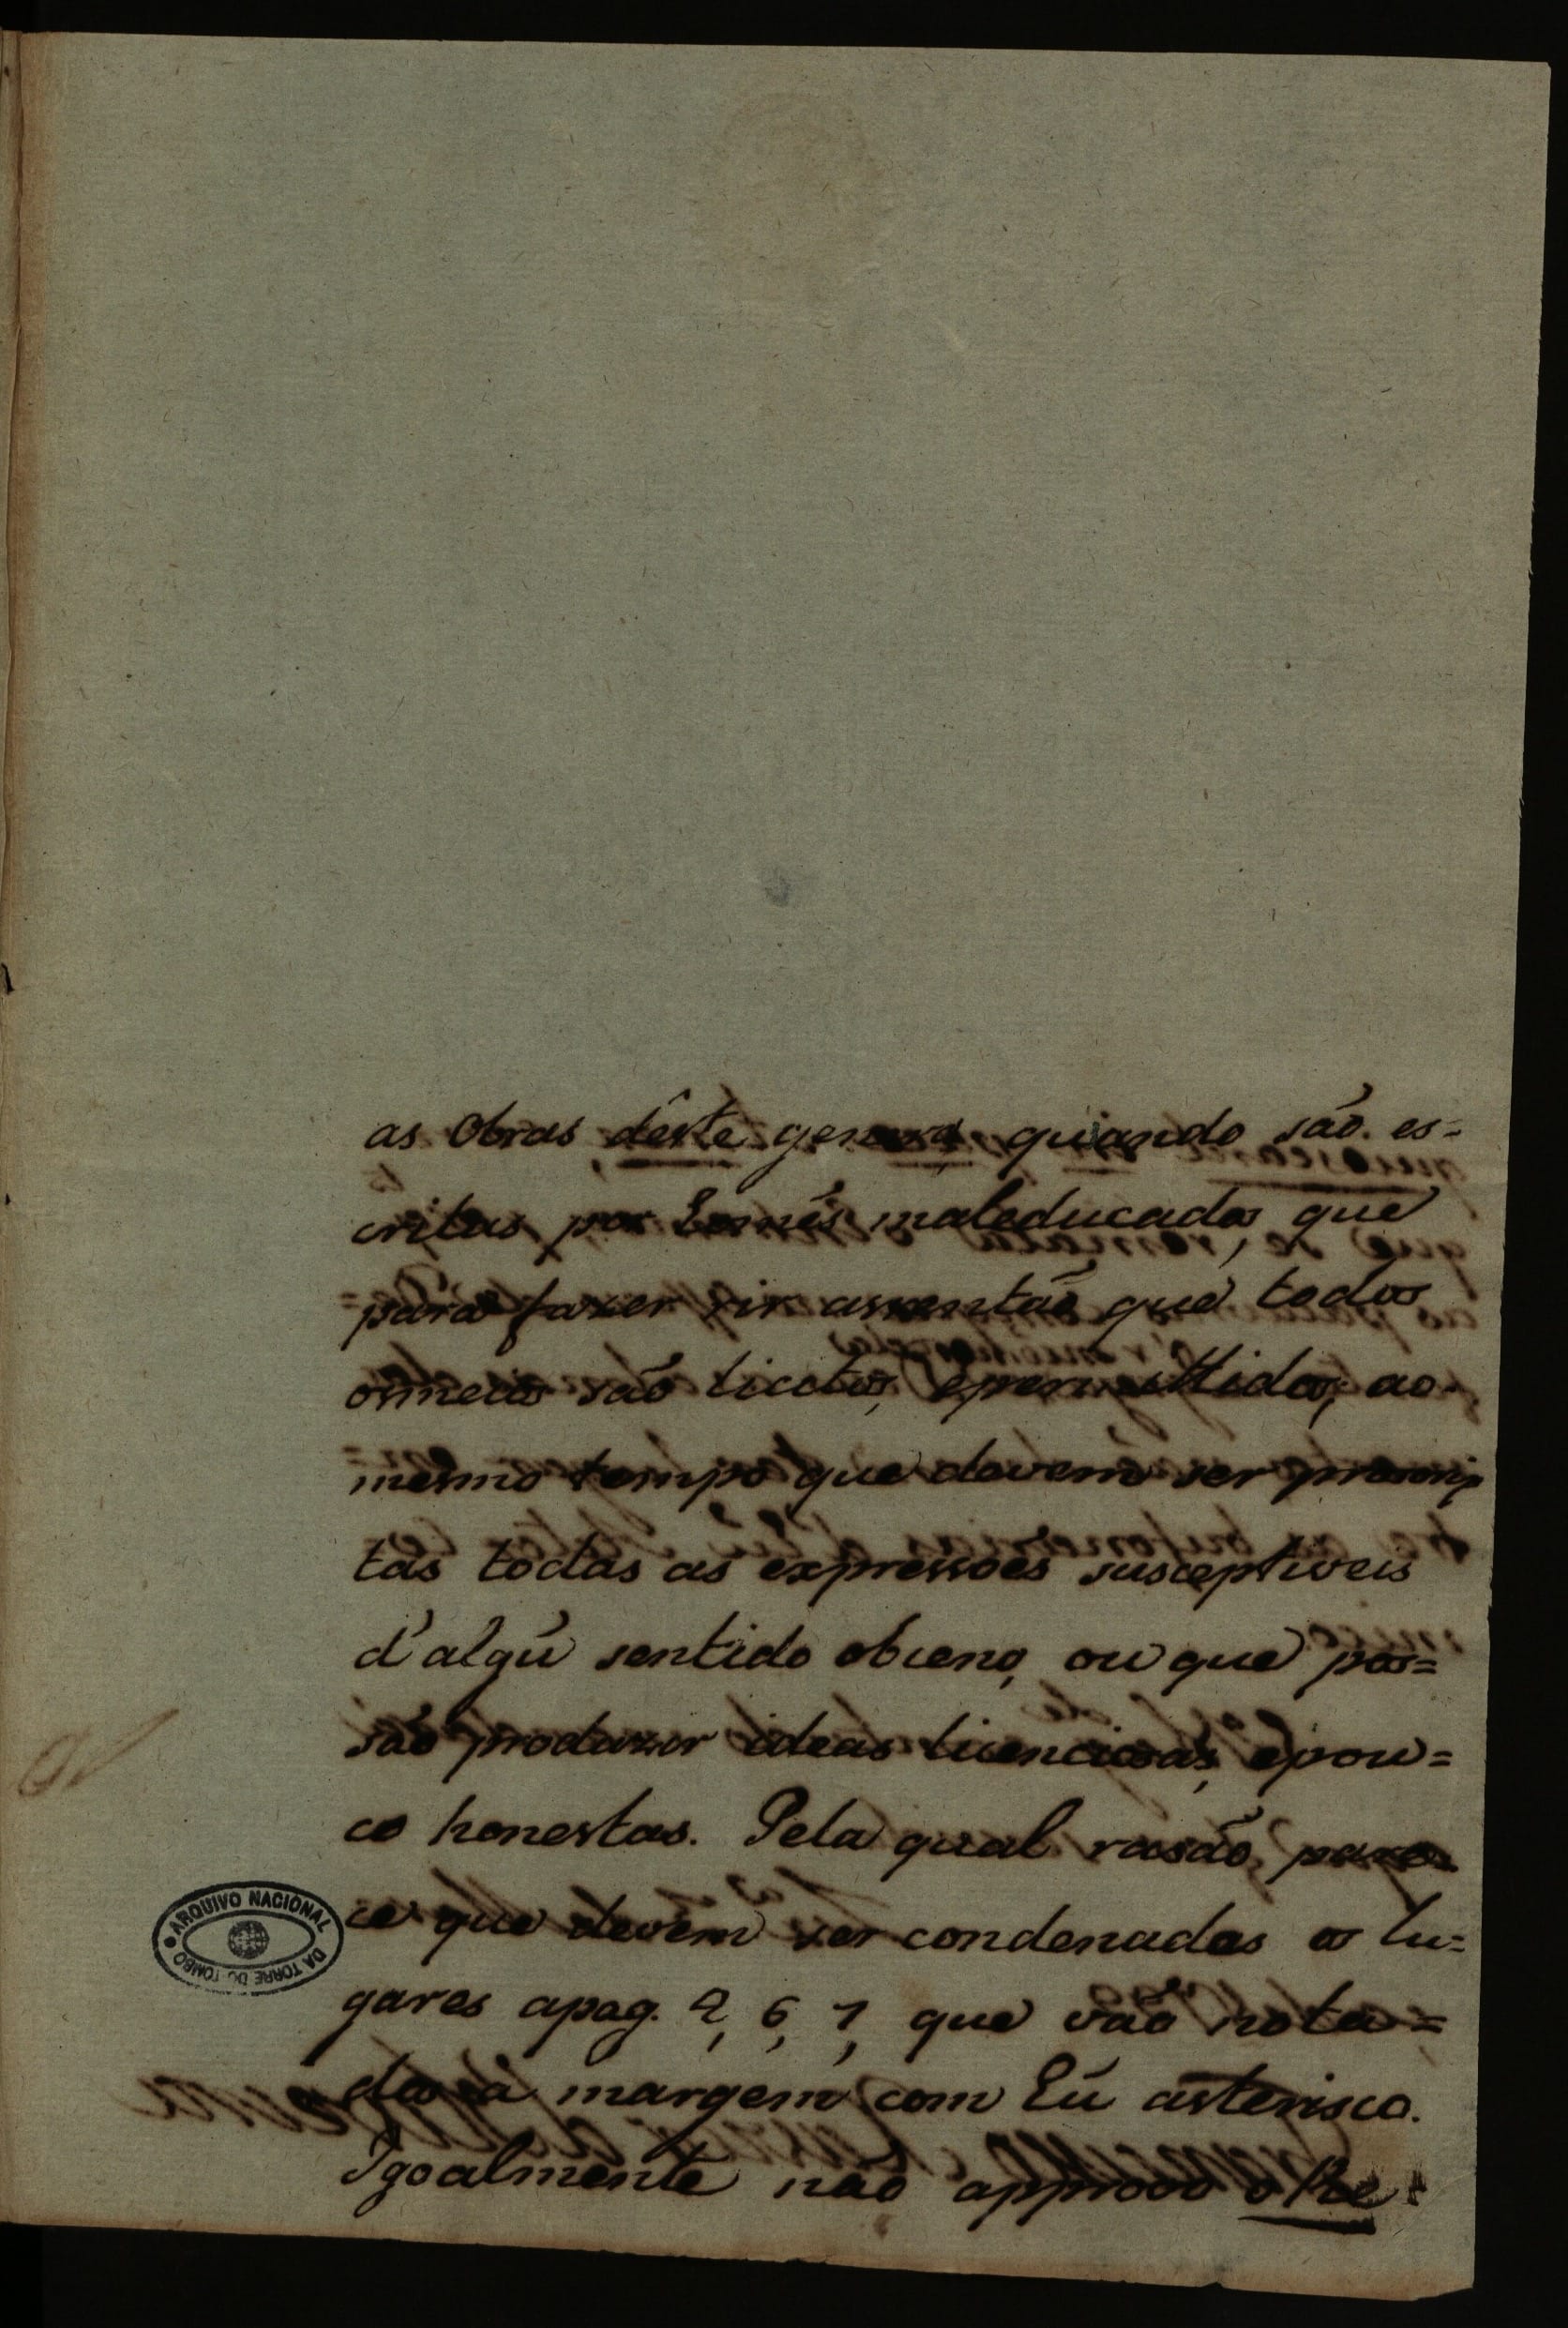 as Obras dêste genero quando são es=
critas por Homẽs maleducados, que
para fazer rir assentão que todos
os meios são licitos, e permittidos; ao
mesmo tempo que devem ser proscrip
tas todas as expressoes susceptiveis
d'algũ sentido obceno, ou que pos=
são produzir ideas licenciosas, e pou=
co honestas. Pela qual rasão, pare
ce que devem ser condenados os lu=
gares apag. 2, 6, 7, que vão nota=
dos á margem com hũ asterisco.
Igoalmente não approvo o Re
ARQUIVO NACIONAL DA TORRE DO TOMBO